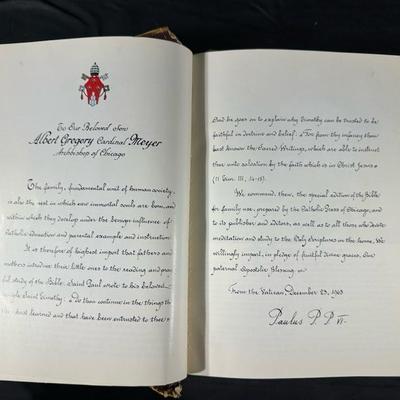 To Our Beloved Son
Albert Gregory Cardinal Meyer
Archbishop of Chicago
The family, fundamental unit of human society,
is also the nest in which new immortal souls are born, and
within which they develop under the benign influence of
Catholic education and parental example and instruction.
It is therefore of highest import that fathers and
mothers introduce their little ones to the reading and pray-
ful study of the Bible. Saint Paul wrote to his beloved
Saint Timothy: « Do thou continue in the things th
hast learned and that have been entrusted to thee »
And he goes on to explain why Timothy can be trusted to be
faithful in doctrine and belief: « For from thy infancy thou
hast known the Sacred Writings, which are able to instruct
thee unto salvation by the faith which is in Christ Jesus »
(II Tim. III, 14-15).
We commend, then, the special edition of the Bible
for family use, prepared by the Catholic Press of Chicago, and
to its publisher and editors, as well as to all those who devote
meditation and study to the Holy Scriptures in the home, We
willingly impart, in pledge of fruitful divine graces, Our
paternal Apostolic Blessing.
From the Vatican, December 23, 1963
Paulus P. P. VI.